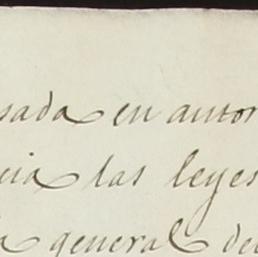 sada en autor
cia las leyes
a general de